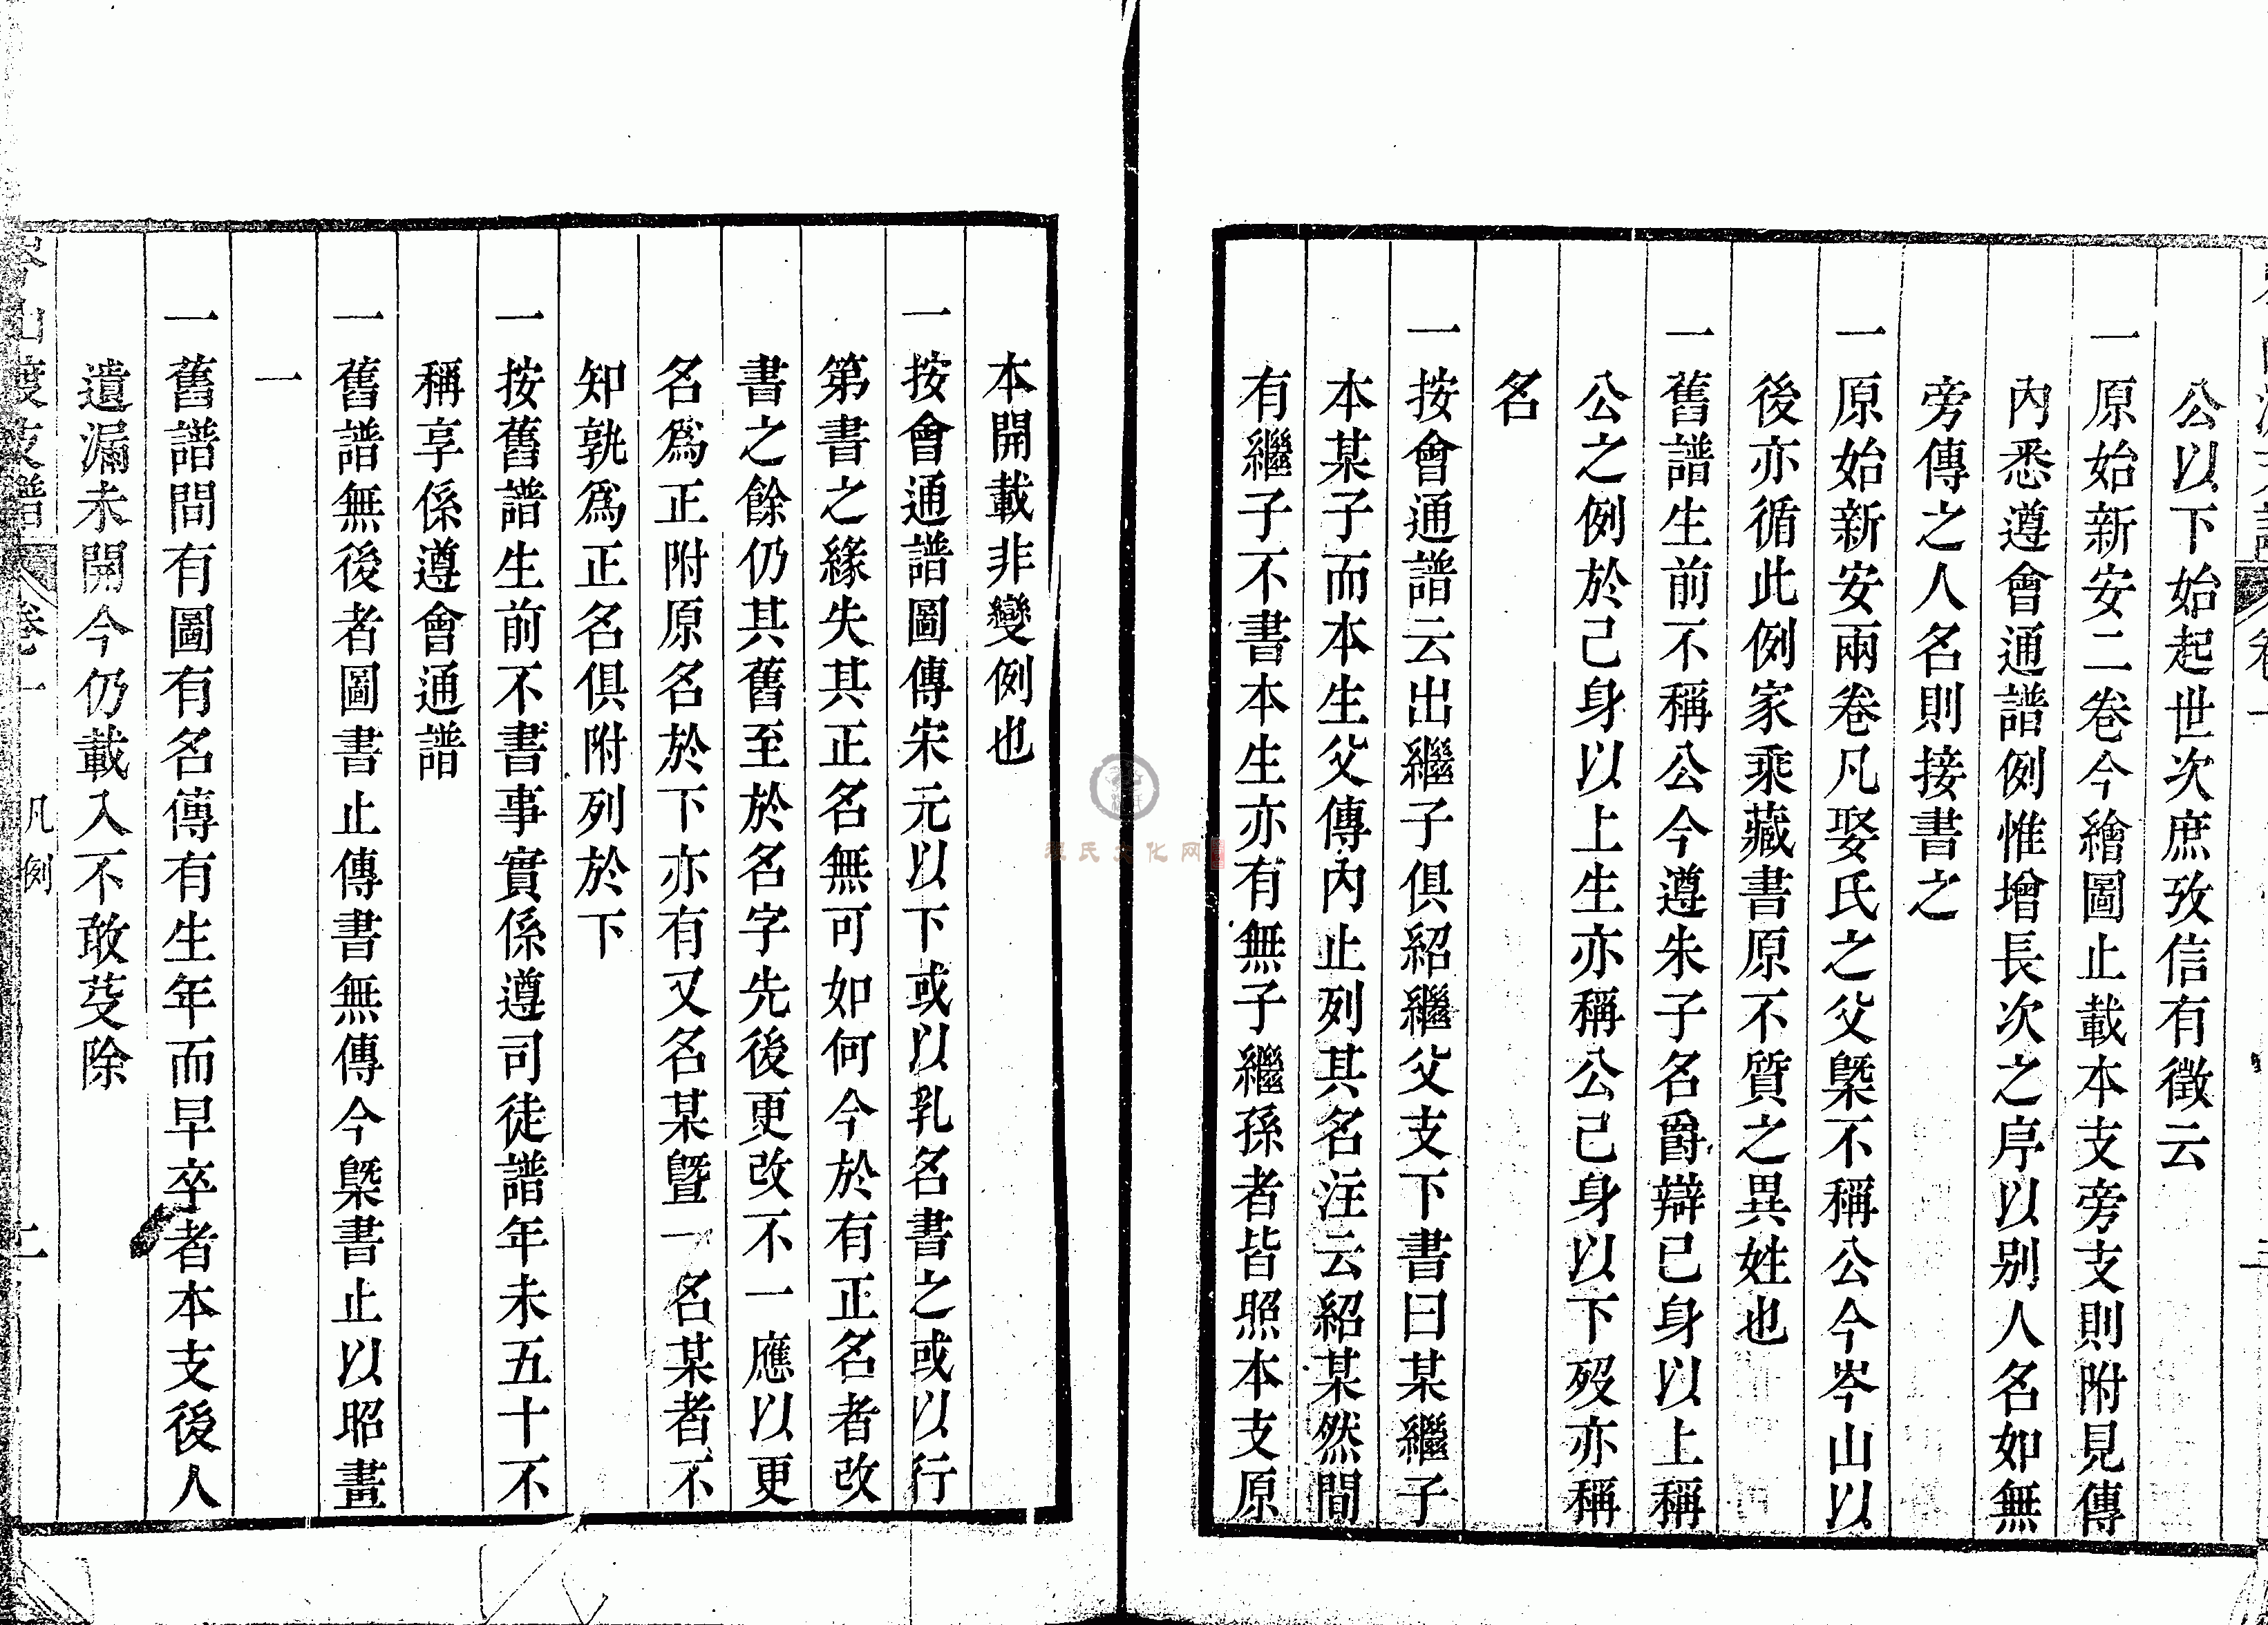 公以下始起世次庶攷信有徵云
一原始新安二卷今繪圖止載本支旁支則附見傳
內悉遵會通譜例惟增長次之序以别人名如無
旁傳之人名則接書之
一原始新安兩卷凡娶氏之父槩不稱公今岑山以
後亦循此例家乘藏書原不質之異姓也
一舊譜生前不稱公今遵朱子名爵辯已身以上稱
公之例於己身以上生亦稱公己身以下歿亦稱
名
一按會通譜云出繼子俱紹繼父支下書曰某繼子
本某子而本生父傳內止列其名注云紹某然間
有繼子不書本生亦有無子繼孫者皆照本支原
本開載非變例也
一按會通譜圖傳宋元以下或以乳名書之或以行
第書之緣失其正名無可如何今於有正名者改
書之餘仍其舊至於名字先後更改不一應以更
名爲正附原名於下亦有又名某曁一名某者不
知孰爲正名俱附列於下
一按舊譜生前不書事實係遵司徒譜年未五十不
稱享係遵會通譜
一舊譜無後者圖書止傳書無傳今槩書止以昭畫
一
一舊譜間有圖有名傳有生年而早卒者本支後人
遺漏未開今仍載入不敢芟除
岑山渡支譜 卷一 凡例 二
程氏文化网